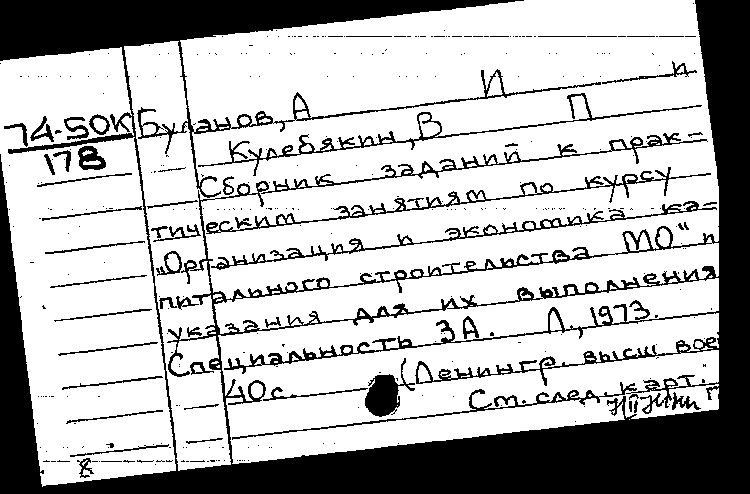 74-50К Буланов, А И и
178 Кулебякин, В П
Сборник заданий к прак-
тическим занятиям по курсу
„Организация и экономика ка-
питального строительства МО" и
указания для их выполнения
Специальность 3А. Л., 1973.
40с. (Ленингр. высш. вое
См. след. карт.
8